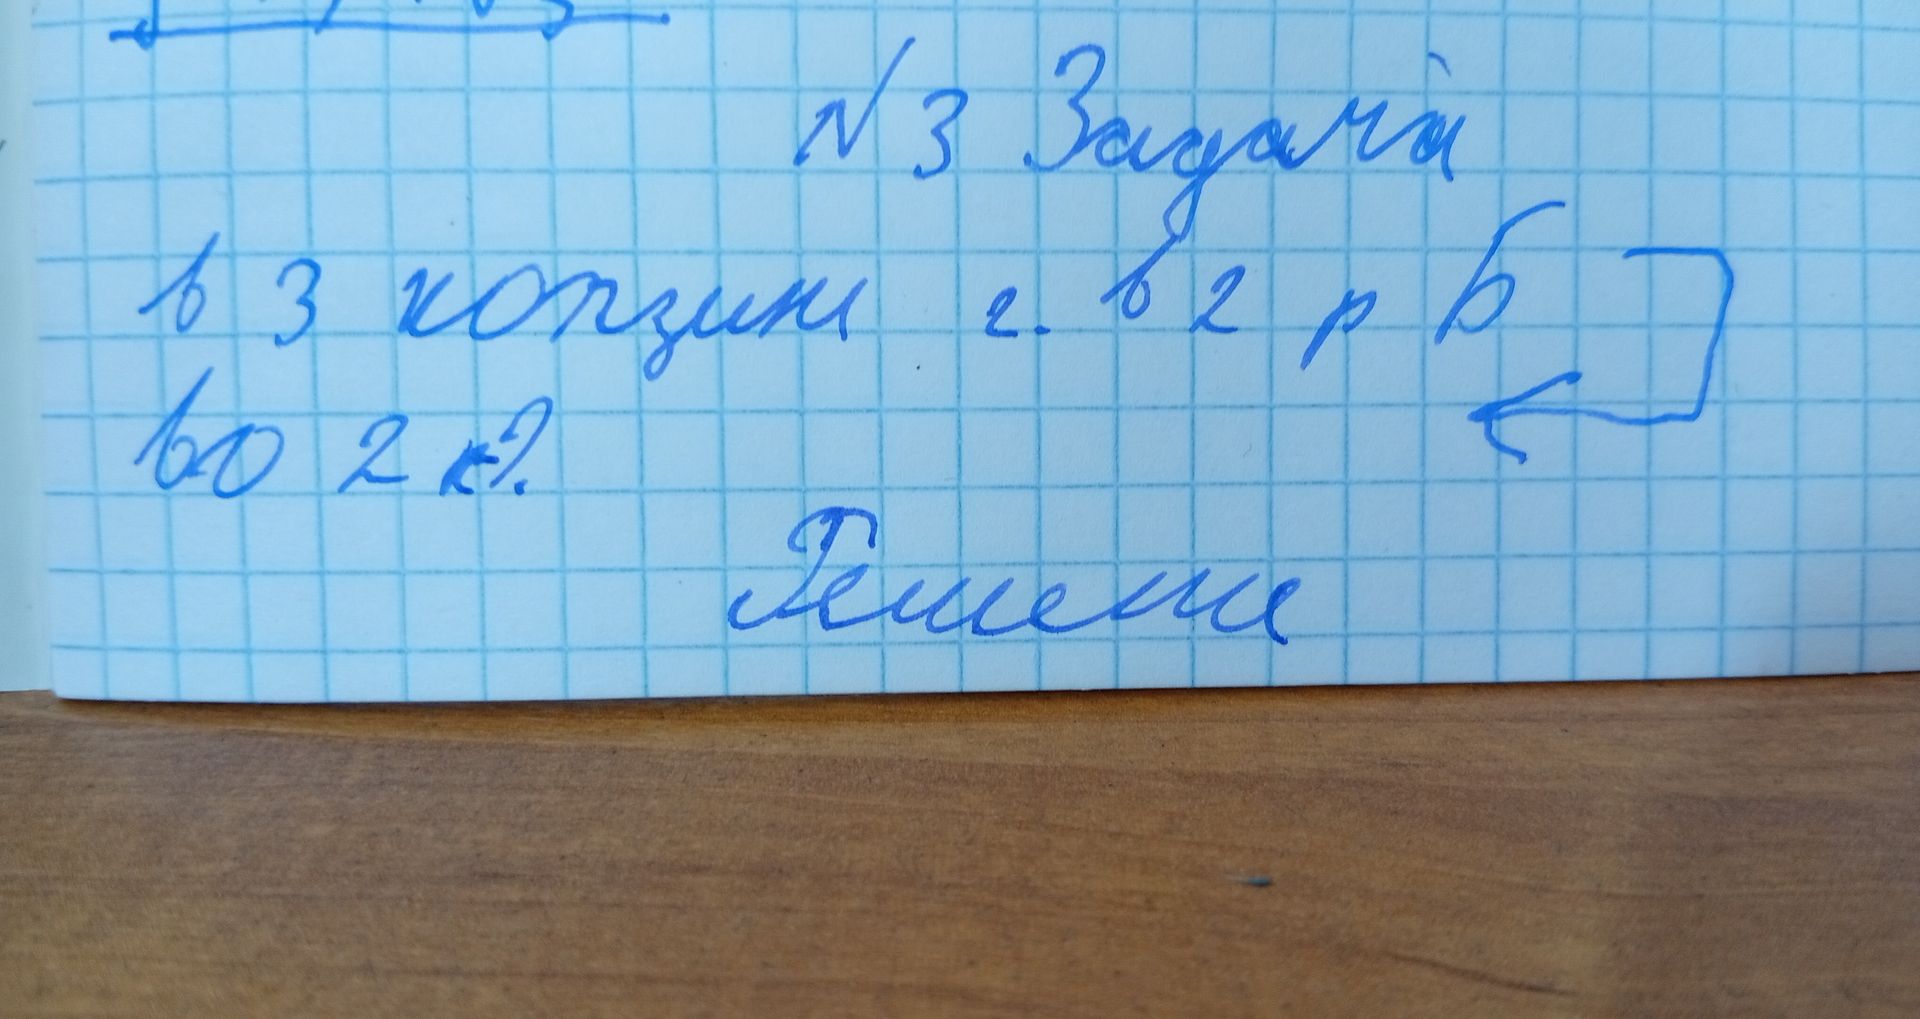 №3 Задача
в 3 корзине г. в 2 р Б
во 2 к?
Решение